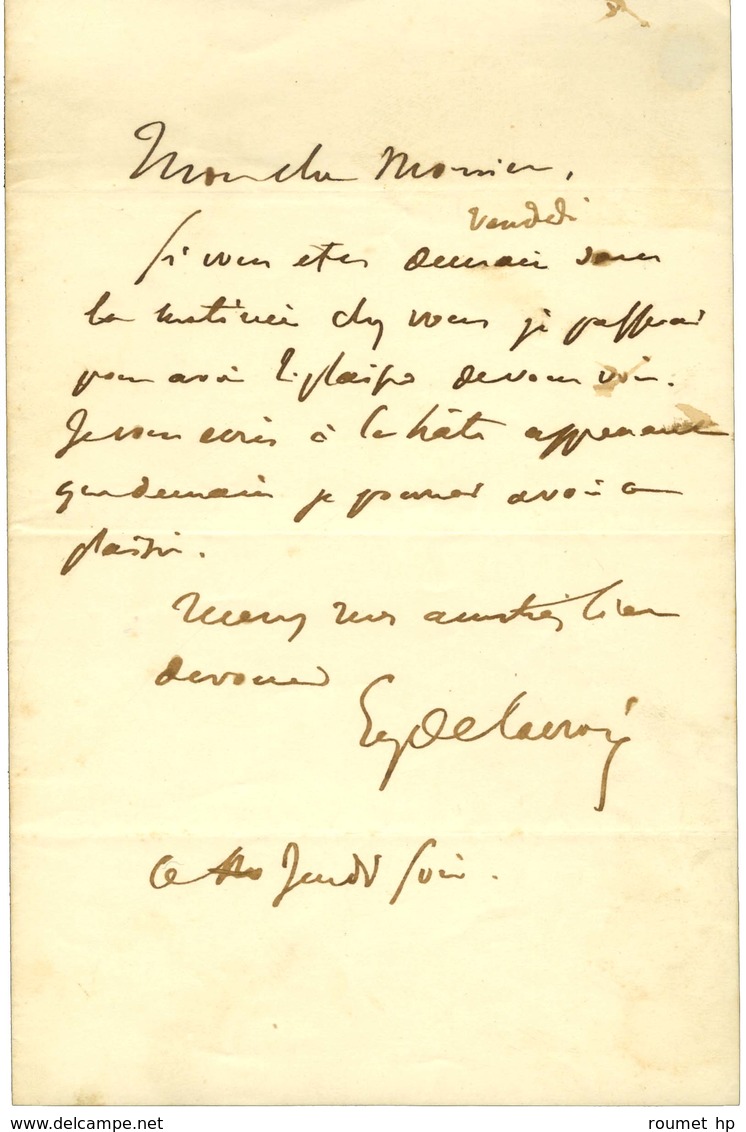 Mon cher Monsieur,
vendredi
Si vous etes demain dans
la matinée chez vous je passerai
pour avoir le plaisir de vous voir.
Je vous écris à la hâte apprenant
que demain je pourrai avoir ce
plaisir.
mon très bien
devoué
Eug Delacroix
Ce Jeudi soir.
www.delcampe.net
roumet hp